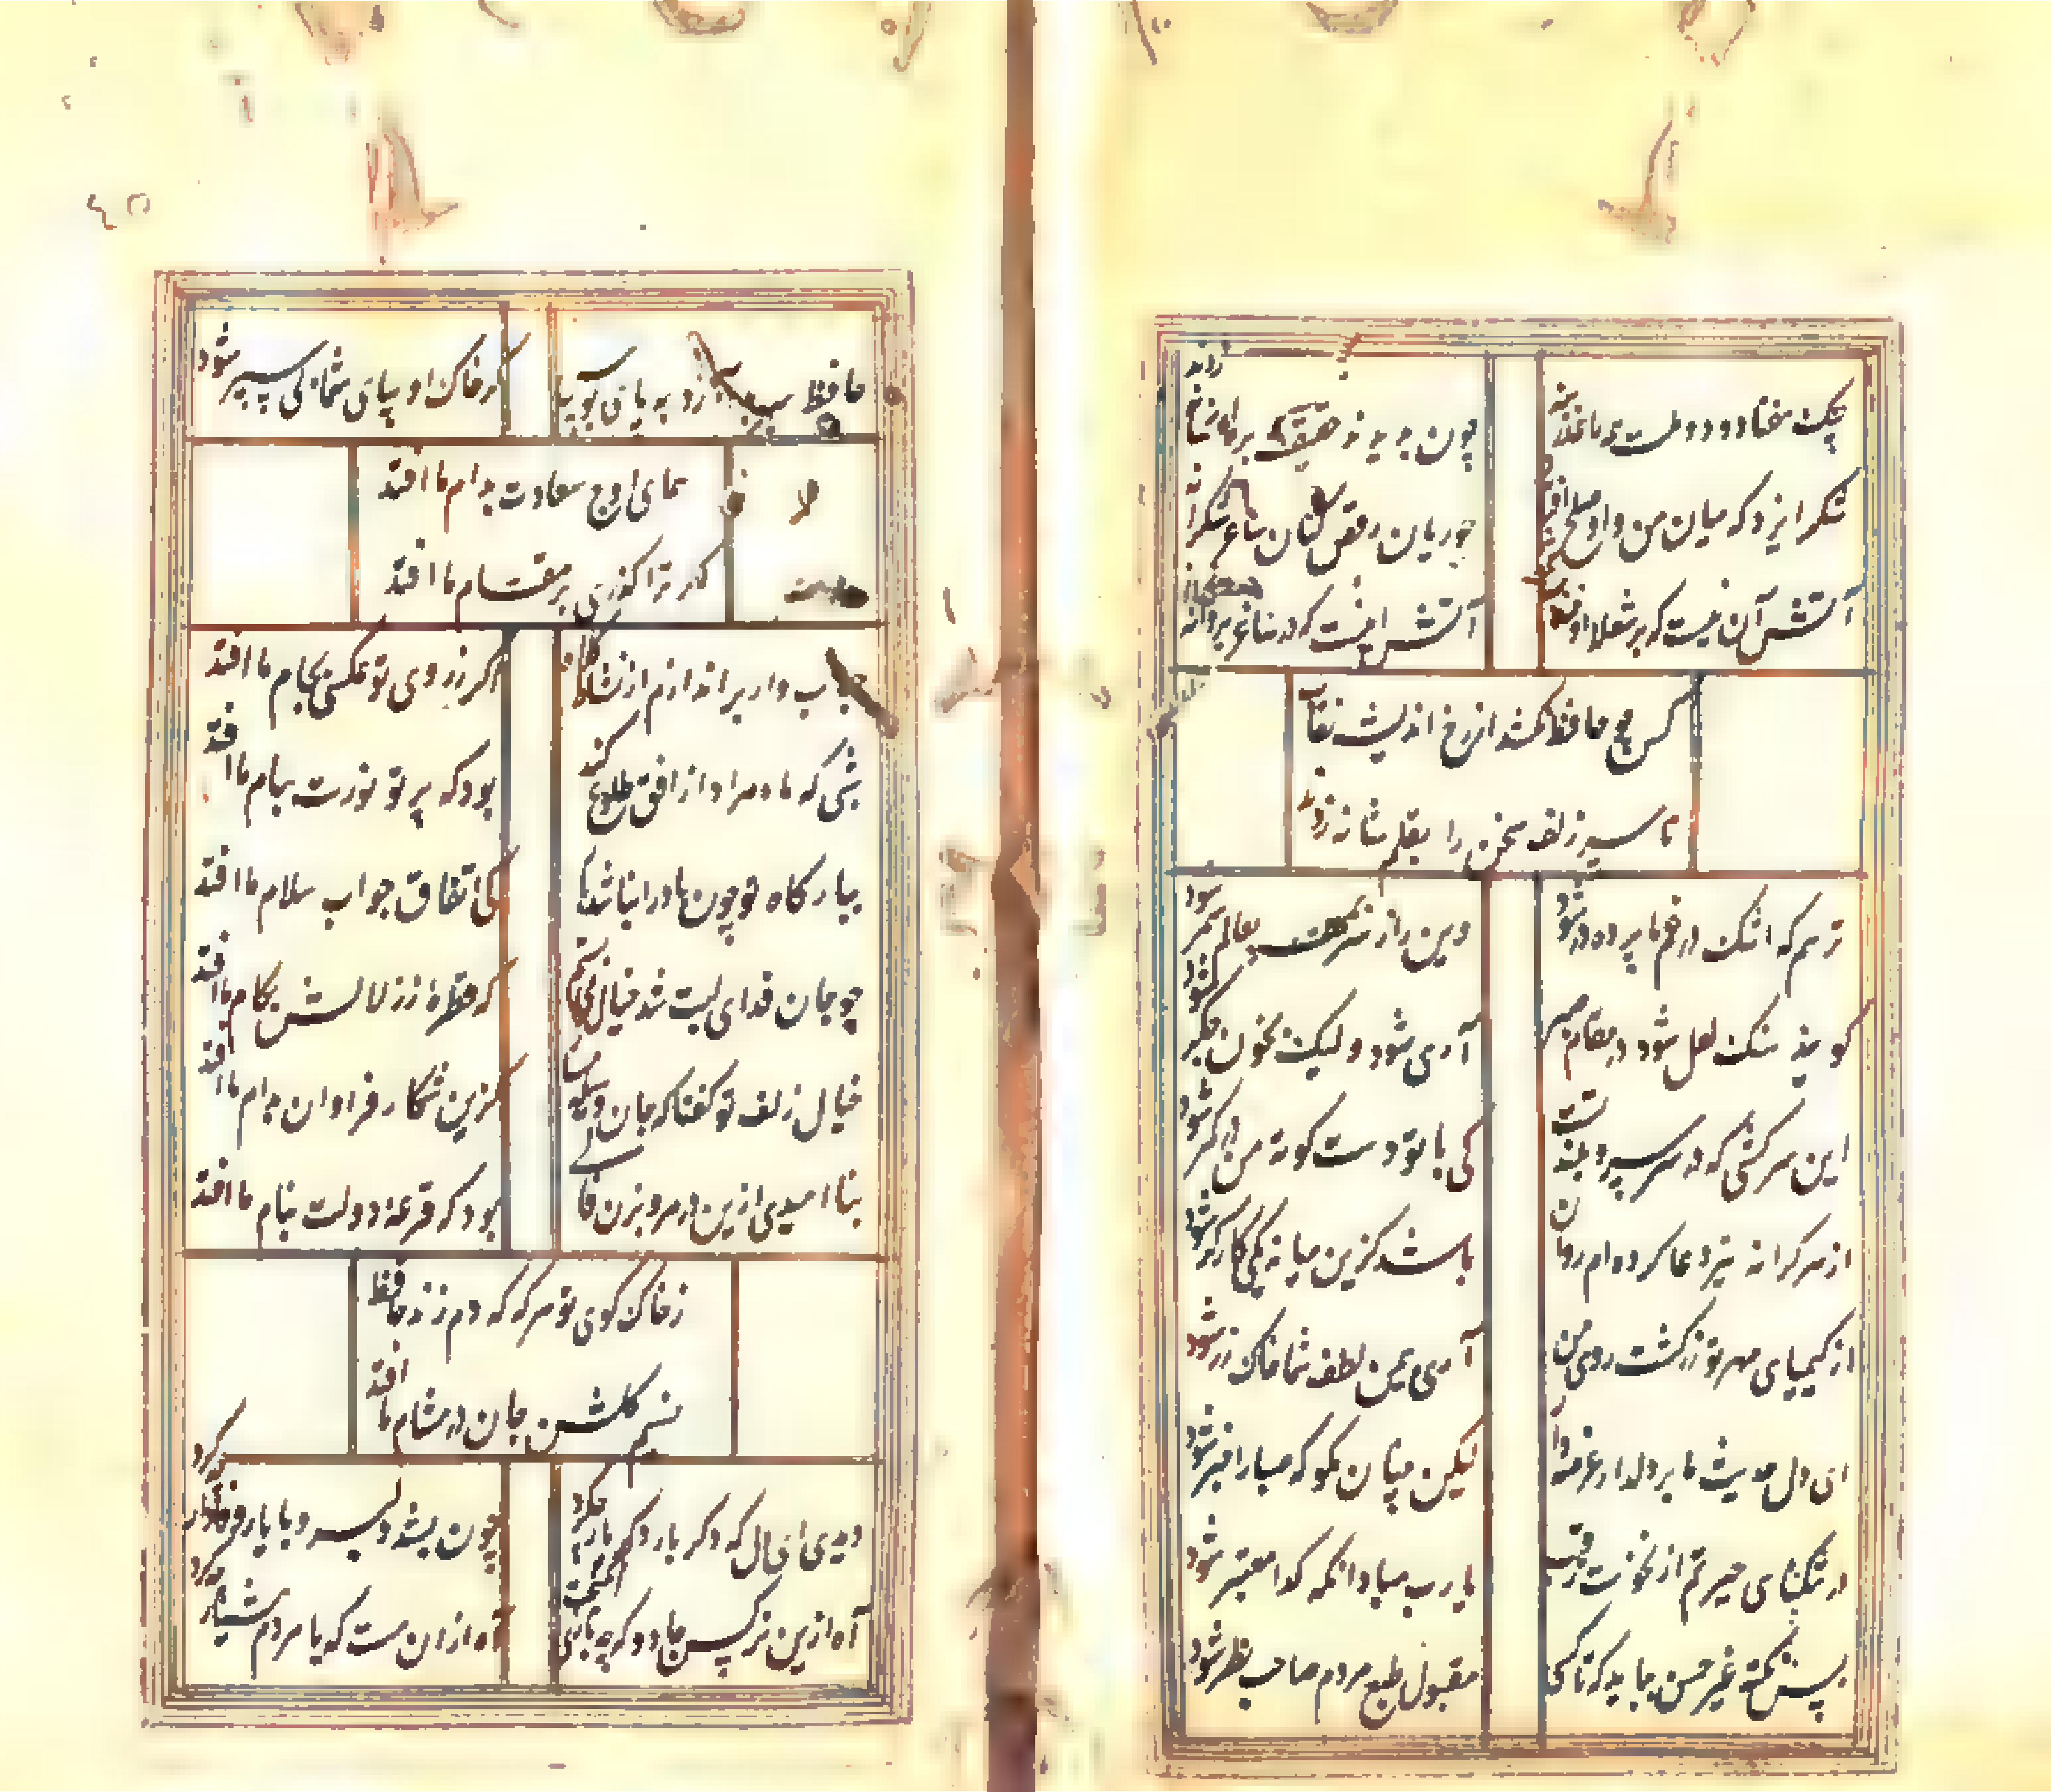 جنگ هفتاد و دو ملت همه را عذر بنه
چون ندیدند حقیقت ره افسانه زدند
شکر ایزد که میان من و او صلح افتاد
حوریان رقص کنان ساغر شکرانه زدند
آتش آن نیست که بر شعله او خندد شمع
آتش آنست که در خرمن پروانه زدند
کس چو حافظ نکشد از رخ اندیشه نقاب
تا سر زلف سخن را بقلم شانه زدند
ترسم که اشک در غم ما پرده در شود
وین راز سر بمهر بعالم سمر شود
گویند سنگ لعل شود در مقام صبر
آری شود ولیک بخون جگر شود
این سرکشی که در سر سرو بلند تست
کی با تو دست کوته من در کمر شود
از هر کرانه تیر دعا کرده ام روان
باشد کزین میانه یکی کارگر شود
از کیمیای مهر تو زر گشت روی من
آری بیمن لطف شما خاک زر شود
ای دل حدیث ما بر دلدار عرضه دار
لیکن چنان مگو که صبا را خبر شود
در تنگنای حیرتم از نخوت رقیب
یا رب مباد آنکه گدا معتبر شود
بس نکته غیر حسن بباید که تا کسی
مقبول طبع مردم صاحب نظر شود
حافظ سر بپای تو
گر خاک او بپای شما پی سپر شود
همای اوج سعادت بدام ما افتد
اگر ترا گذری بر مقام ما افتد
حباب وار براندازم از نشاط کلاه
اگر ز روی تو عکسی بجام ما افتد
شبی که ماه مراد از افق طلوع کند
بود که پرتو نورت ببام ما افتد
ببارگاه تو چون باد را نباشد بار
کی اتفاق جواب سلام ما افتد
چو جان فدای لبت شد خیال می بستم
که قطره ز زلالش بکام ما افتد
خیال زلف تو گفتا که جان وسیله مساز
کزین شکار فراوان بدام ما افتد
بنا امیدی ازین در مرو بزن فالی
بود که قرعه دولت بنام ما افتد
ز خاک کوی تو هر گه که دم زند حافظ
نسیم گلشن جان در مشام ما افتد
دیدی ای دل که دگر بار دگر یار چه کرد
چون بشد دلبر و با یار وفادار چه کرد
آه ازین نرگس جادو که چه بازی انگیخت
آه ازان مست که با مردم هشیار چه کرد